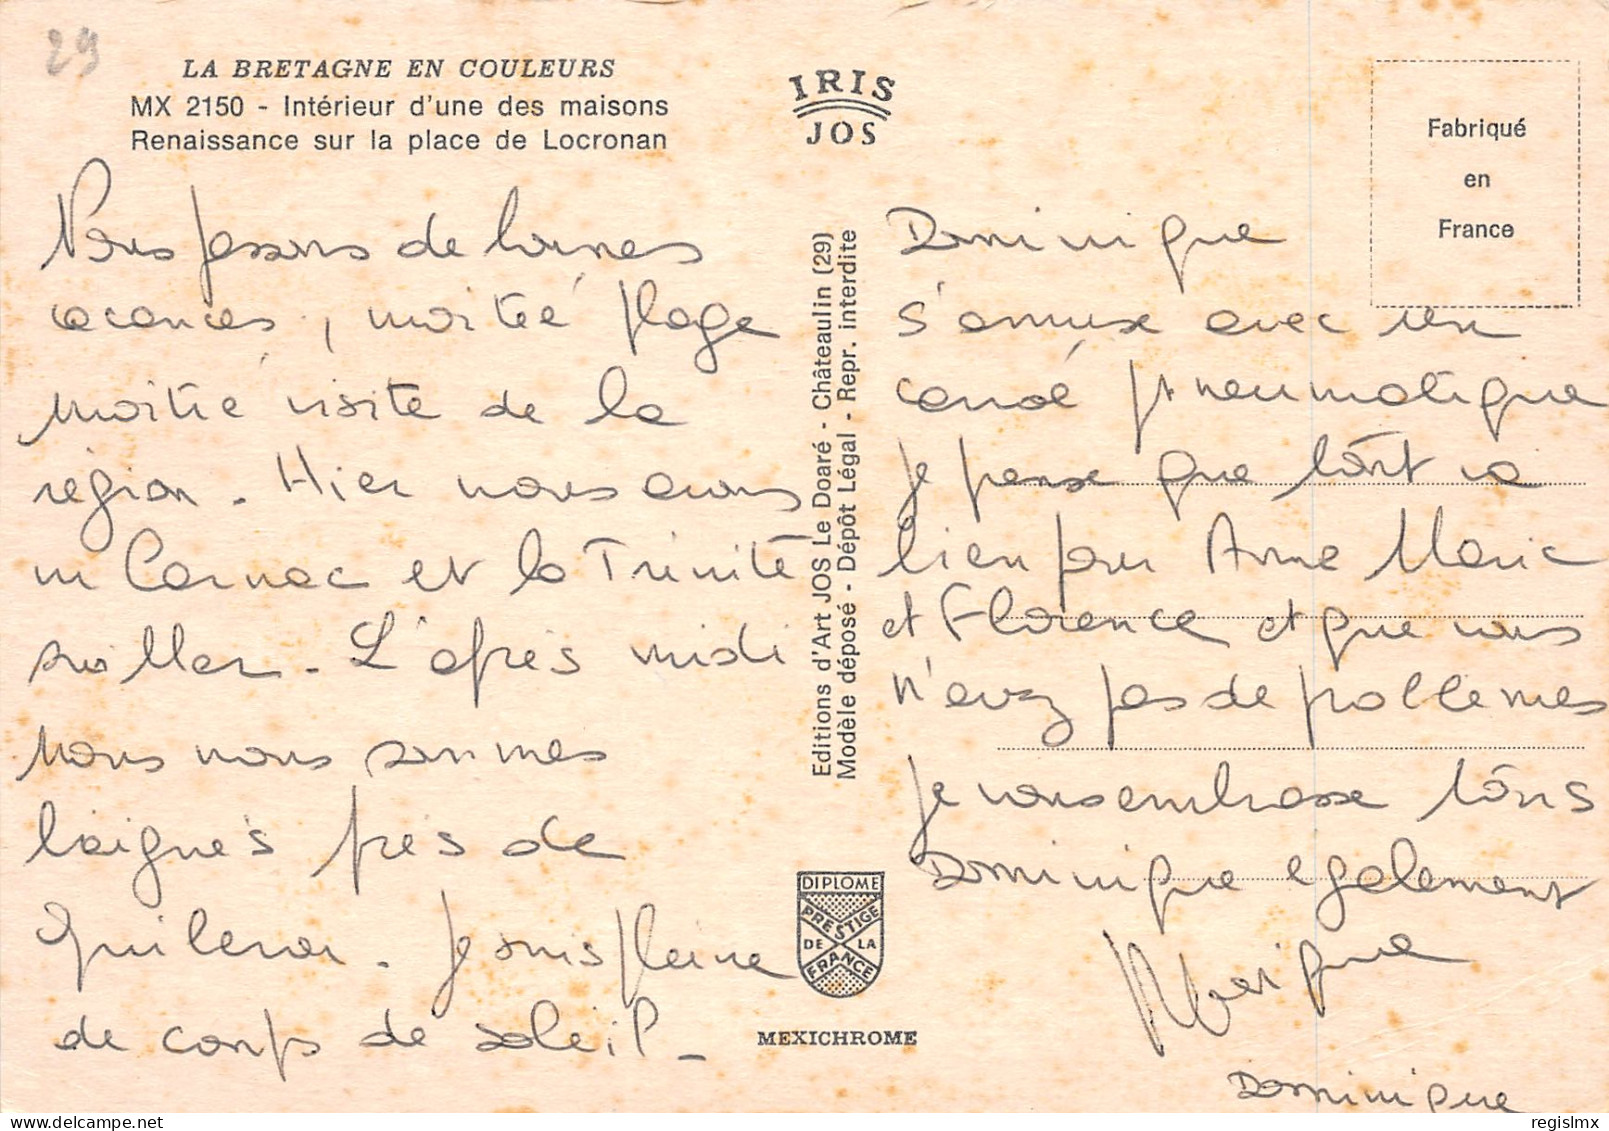 29
LA BRETAGNE EN COULEURS
MX 2150 - Intérieur d'une des maisons
Renaissance sur la place de Locronan
IRIS
JOS
Fabriqué
en
France
Nous passons de bonnes
vacances, moitié plage
moitié visite de la
région. Hier nous avons
vu Carnac et la Trinité
sur Mer. L'après midi
nous nous sommes
baignés près de
Quiberon. Je suis pleine
de coups de soleil.
Editions d'Art JOS Le Doaré - Châteaulin (29)
Modèle déposé - Dépôt Légal - Repr. interdite
DIPLOME
PRESTIGE
DE LA
FRANCE
MEXICHROME
Dominique
s'amuse avec un
canoé pneumatique
Je pense que tout va
bien pour Anne Marie
et Florence et que vous
n'avez pas de problèmes
Je vous embrasse tous
Dominique egalement
Dominique
regislmx